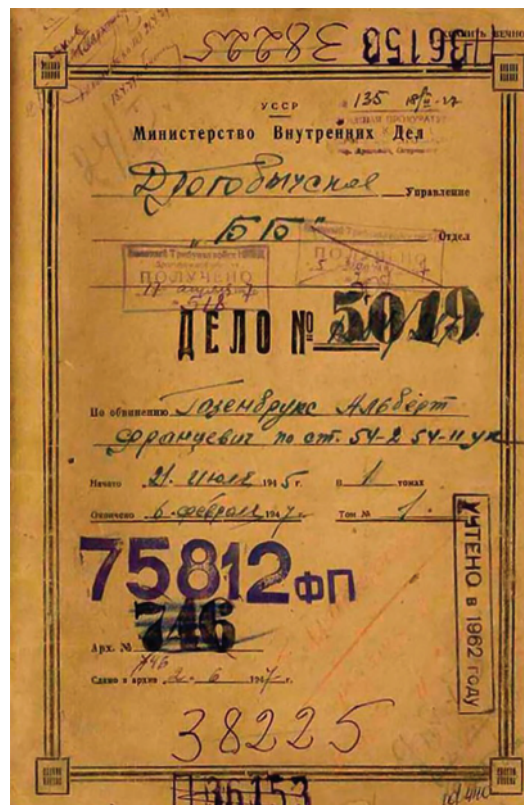 38225
П36153
УССР
135
Министерство Внутренних Дел
Дрогобычское Управление
"ББ" Отдел
ПОЛУЧЕНО
ПОЛУЧЕНО
518
ДЕЛО № 5019
По обвинению Газенбрукс Альберт
Францевич по ст. 54-2 54-11 УК
Начато 21. июля 1945 г. В 1 томах
Окончено 6 февраля 1947 г. Том № 1.
УЧТЕНО в 1962 году
75812 ФП
746
Арх. №
746
Сдано в архив 2-6 1947 г.
38225
П36153